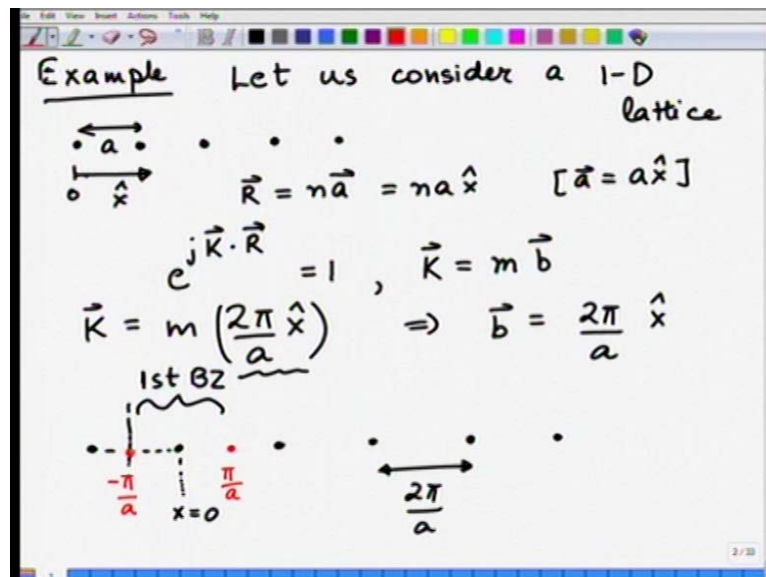 File Edit View Insert Actions Tools Help
Example Let us consider a 1-D
lattice
a
0 x̂
R⃗ = na⃗ = nax̂ [a⃗ = ax̂]
e^{jK⃗·R⃗} = 1 , K⃗ = m b⃗
K⃗ = m (2π/a x̂) ⇒ b⃗ = 2π/a x̂
1st BZ
-π/a x=0 π/a 2π/a
2/33